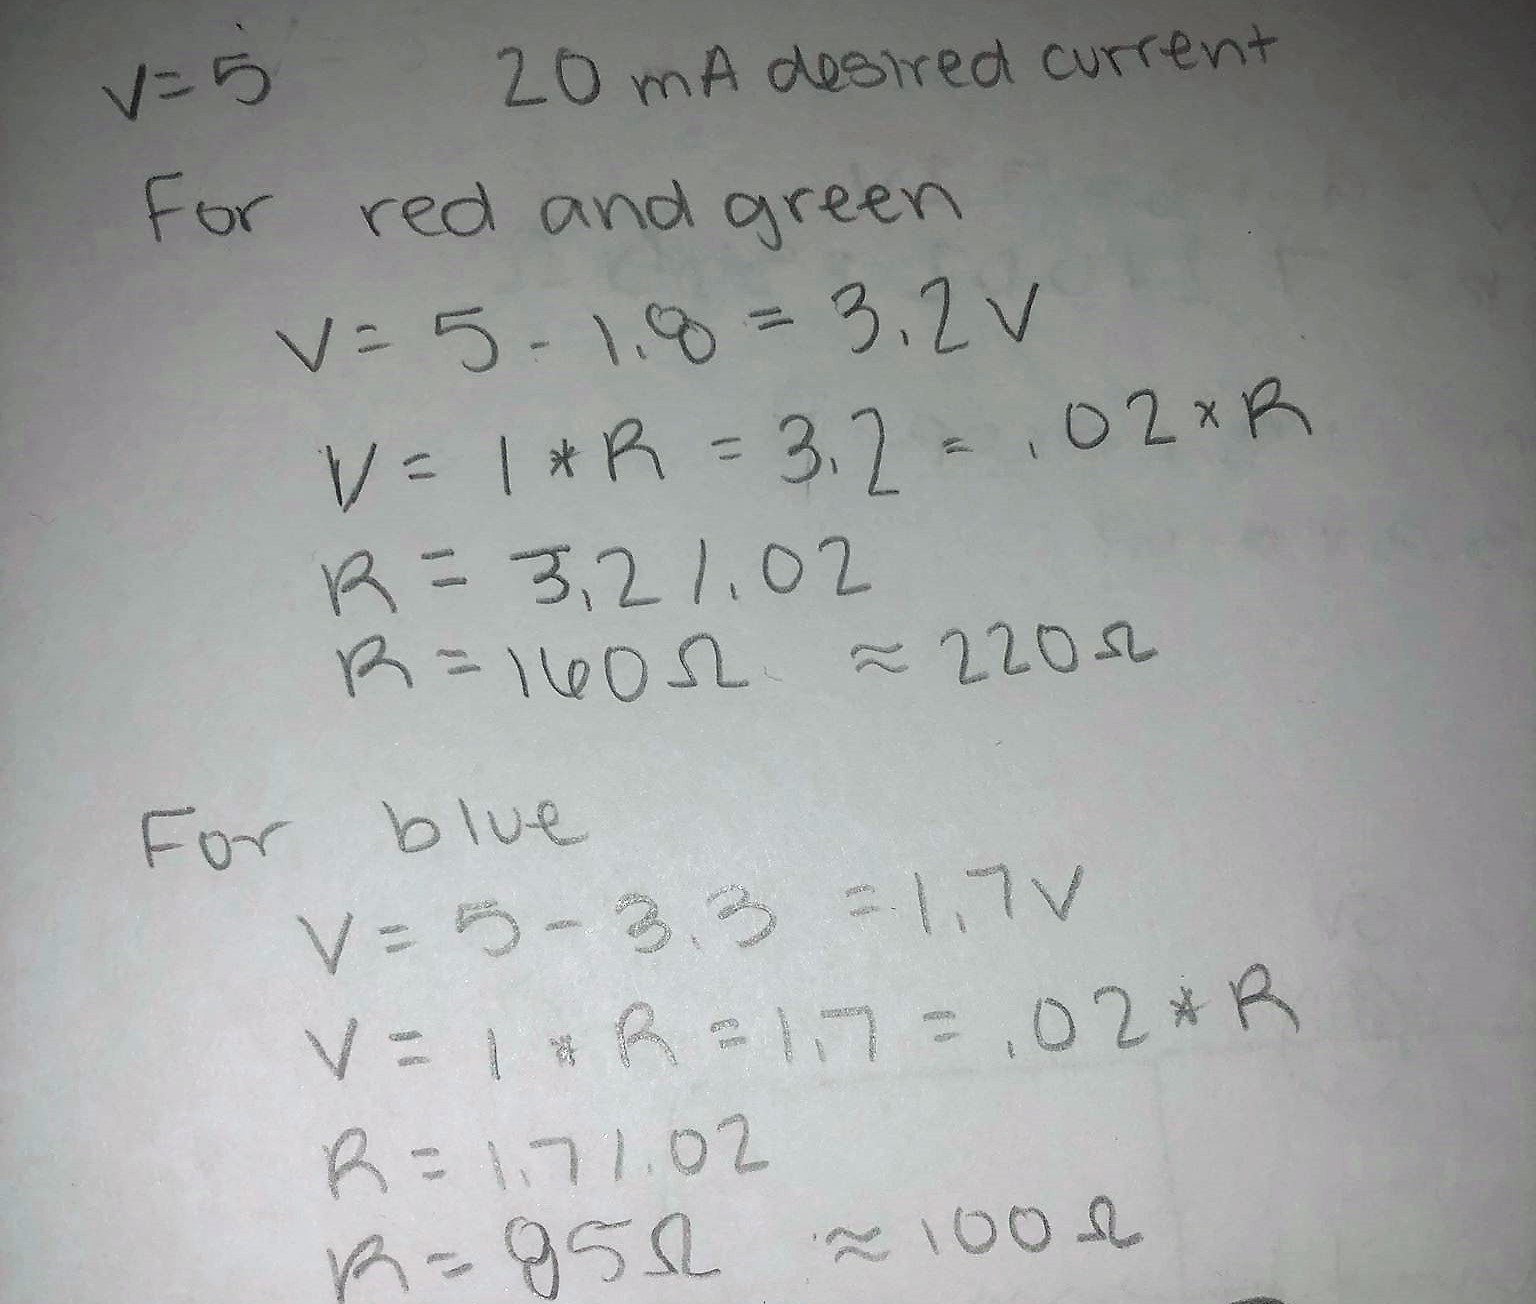 V=5 20 mA desired current
For red and green
V= 5 - 1.8 = 3.2 V
V = I * R = 3.2 = .02 * R
R = 3.2 / .02
R = 160Ω ≈ 220Ω
For blue
V = 5 - 3.3 = 1.7V
V = I * R = 1.7 = .02 * R
R = 1.7 / .02
R = 85Ω ≈ 100Ω